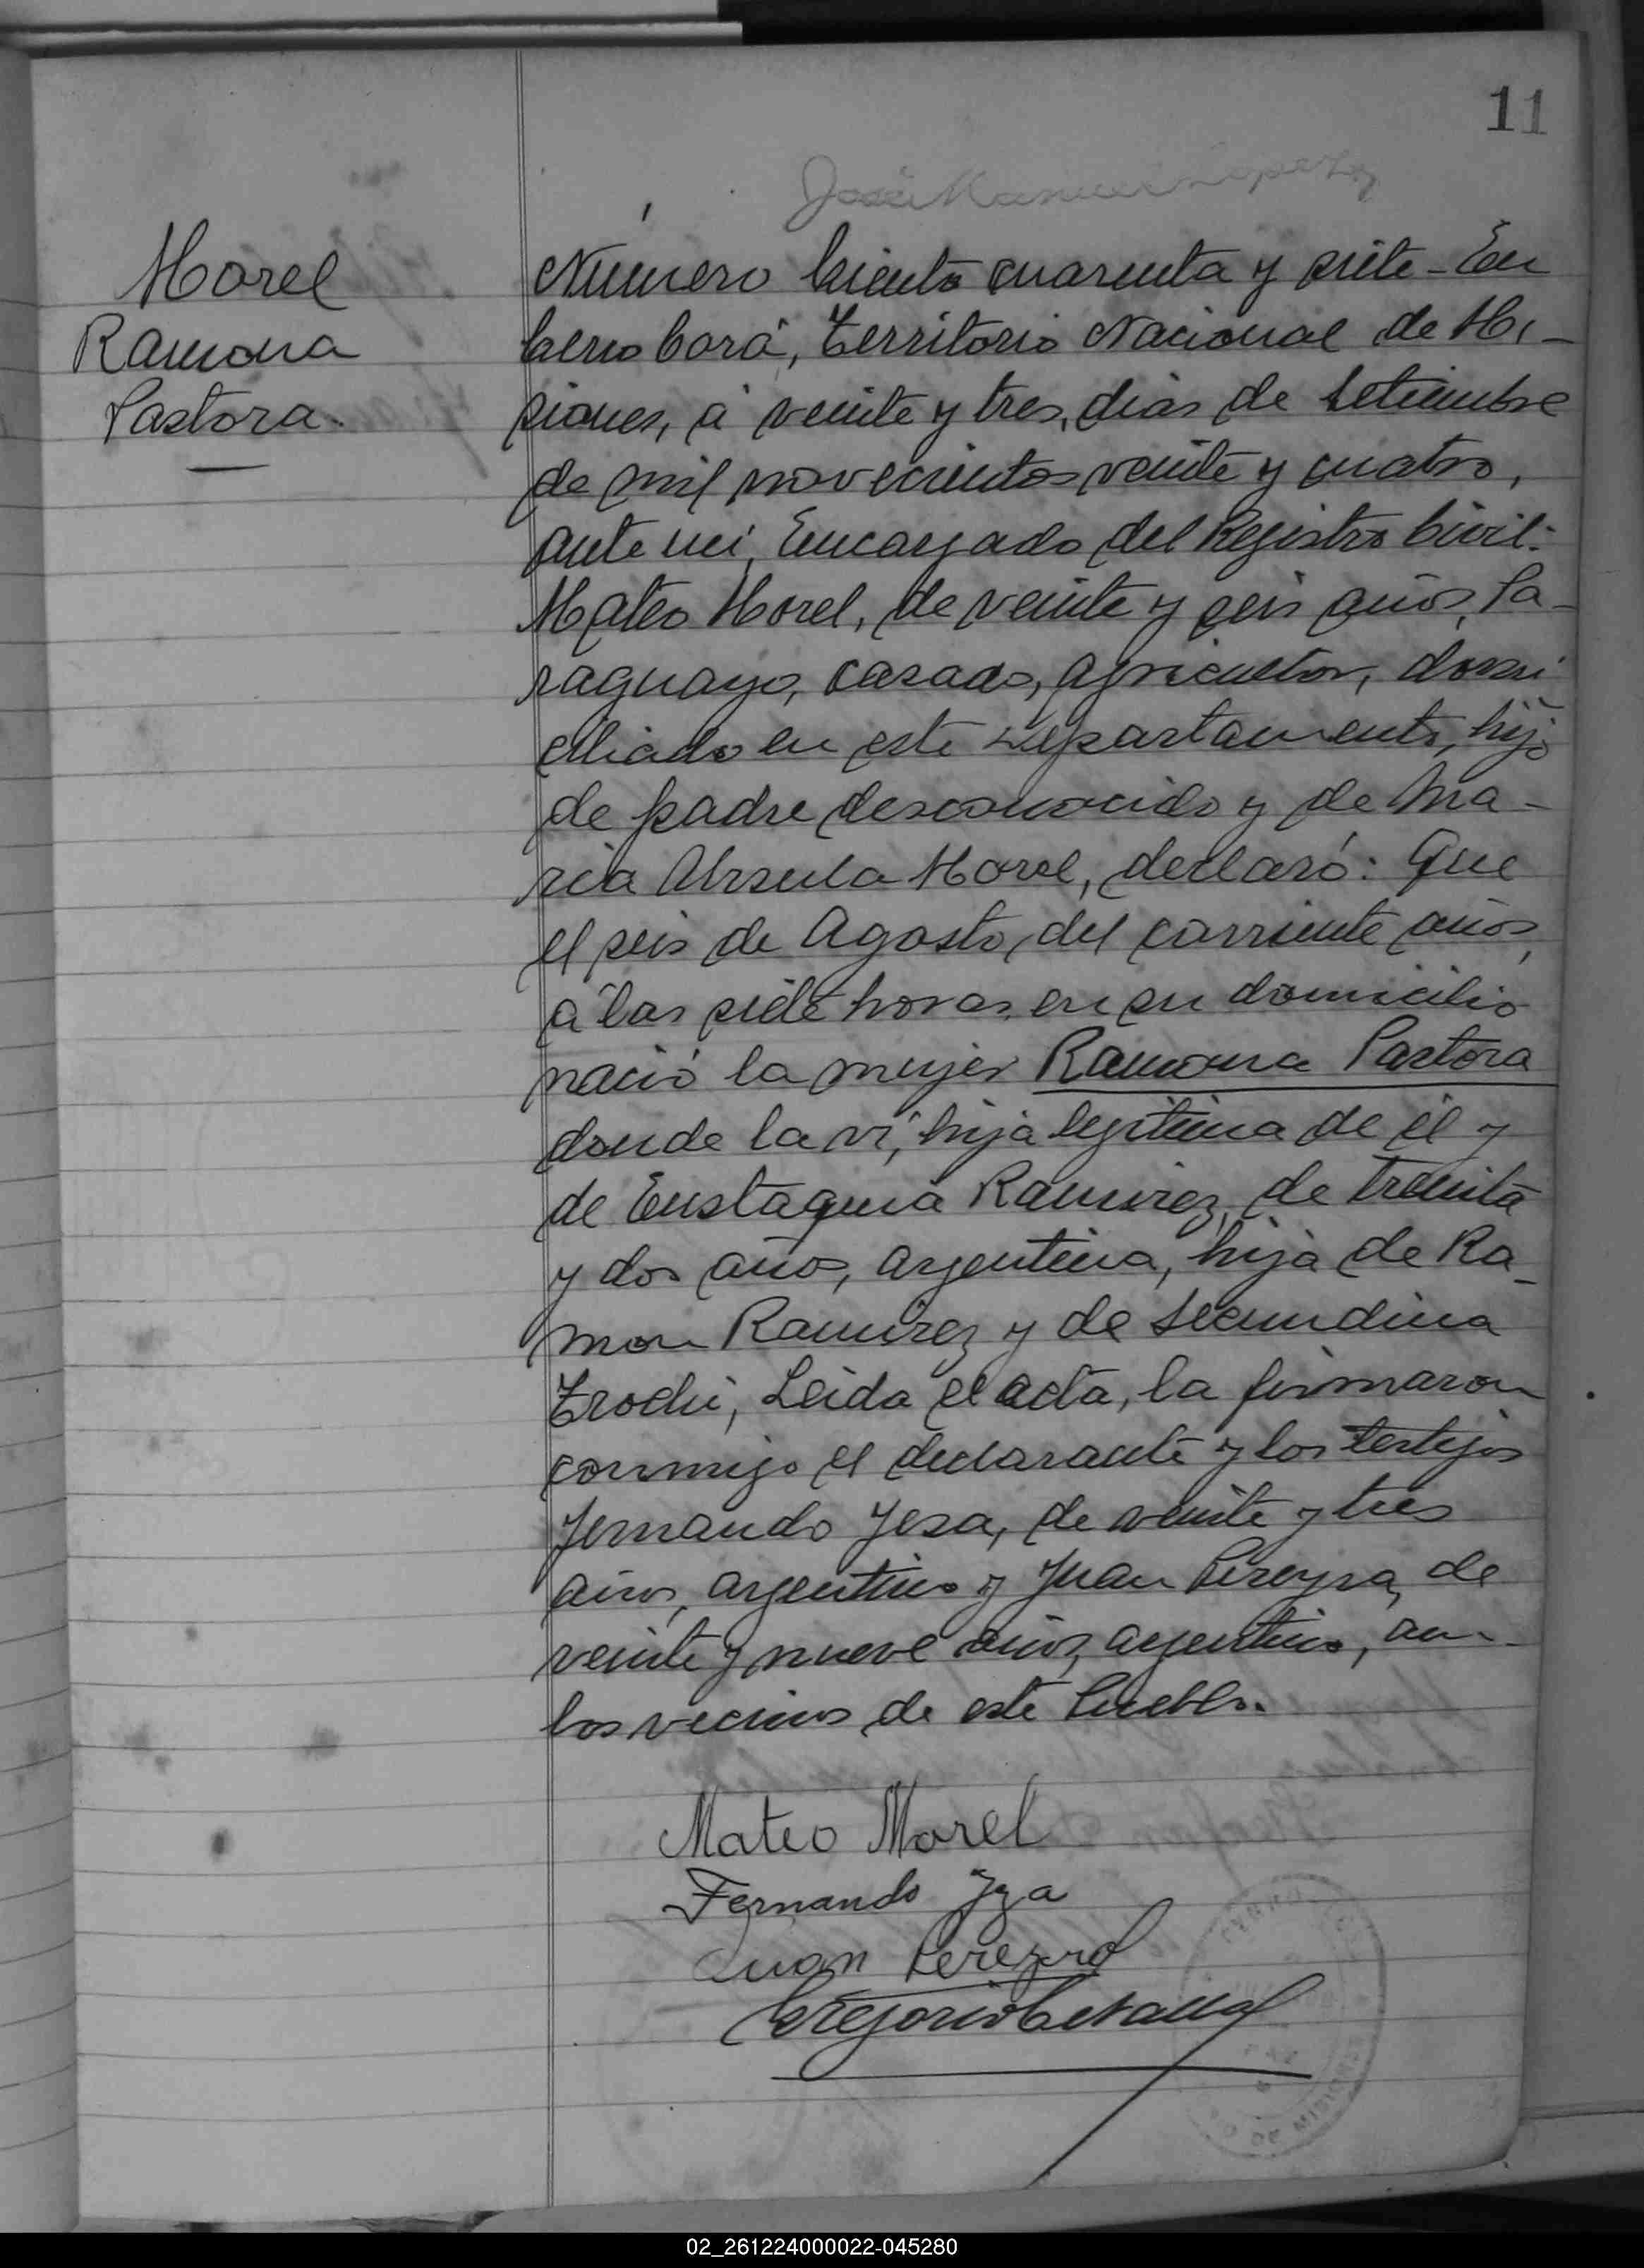 11
José Manuel Lopez
Morel
Ramona
Pastora.
Número Ciento cuarenta y siete - En
Cerro Corá, Territorio Nacional de Mi-
siones, á veinte y tres, dias de Setiembre
de mil novecientos veinte y cuatro,
ante mi, Encargado del Registro Civil:
Mateo Morel, de veinte y seis años, Pa-
raguayo, casado, agricultor, domi
ciliado en este Departamento, hijo
de padre desconocido y de Ma-
ria Ursula Morel, declaró: Que
el seis de Agosto, del corriente años,
a las siete horas, en su domicilio
nació la mujer Ramona Pastora
donde la ví, hija legitima de él y
de Eustaquia Ramirez, de treinta
y dos años, argentina, hija de Ra-
mon Ramirez y de Secundina
Leida el acta, la firmaron
conmigo el declarante y los testigos
Fernando Yesa, de veinte y tres
años, argentino y Juan Pereyra, de
veinte y nueve años, argentino, am-
bos vecinos de este Pueblo.
Mateo Morel
Fernando
Juan
Gregorio
DE MISIONES
02_261224000022-045280